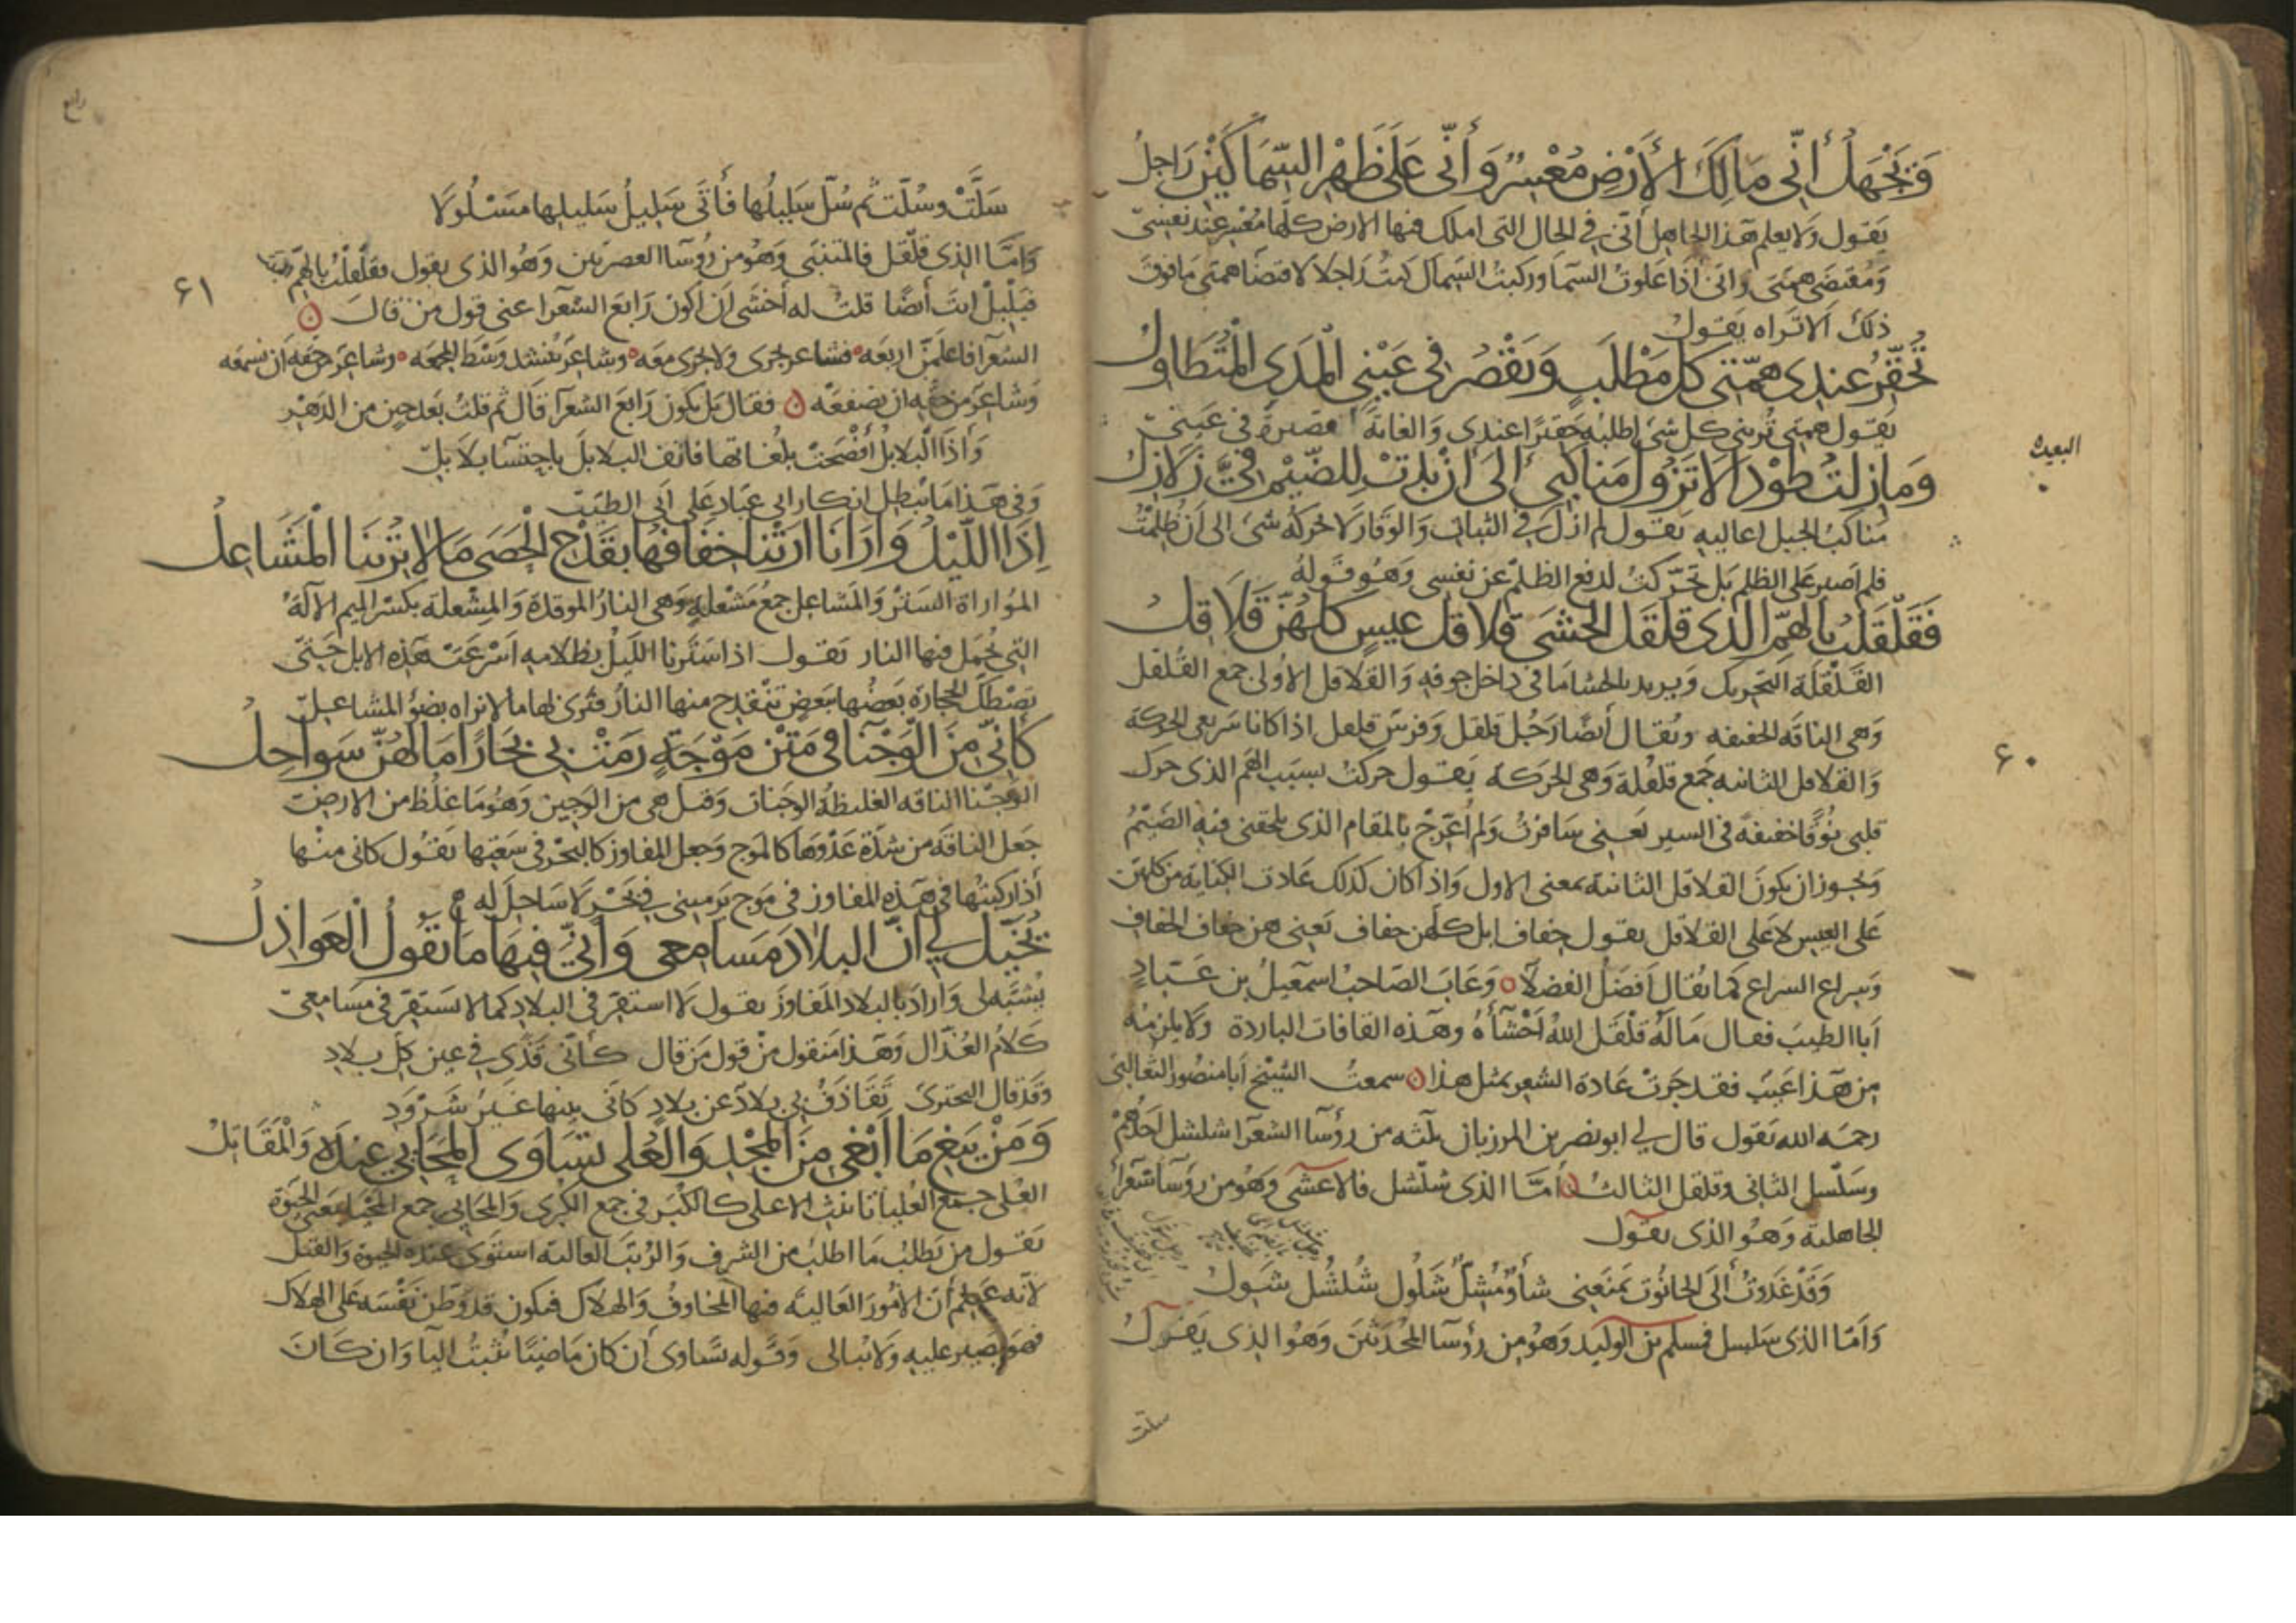 وَيَجْهَلُ أَنِّي مَالِكَ الأَرْضِ مُعْسِرٌ وَأَنِّي عَلَى ظَهْرِ السِّمَاكَيْنِ رَاجِلُ
يَقول وَلا يعلم هَذا الجاهِل أَنّي في الحال التي املك فيها الارض كلّها مُعْسِر عِند نفسِي
وَمُقتضَى همتى وَانّى اذا عَلوتُ السّمآ وركبتُ السِّماك كنتُ رَاجلا لاقتضآ همتى مَا فوق
ذلك الا تراه يَقول
تُحَقِّرُ عِندِي هِمّتِي كلَّ مَطْلَبٍ وَيَقْصُرُ في عَيْنِي الْمَدَى الْمُتَطَاوِلُ
يَقول همتِي تُريني كل شئ اطلبُه حَقيرًا عندِى وَالغايَةَ قصيرةً في عَينيّ
البعيدة
وَمازِلتُ طَوْدًا لا تَزُولُ مَناكِبي إلَى أَنْ بَدَتْ لِلضَّيْمِ فِيَّ زَلازِلُ
مَناكبُ الجبل اعاليهِ يَقول لم ازل في الثبات وَالوَقار لا يحرّكه شئ الى ان ظُلِمْتُ
فلم اصبر على الظلم بل تحَرّكتُ لدفع الظلم عن نفسى وَهُو قَوله
فَقَلْقَلْتُ بِالهَمِّ الّذِى قلقَلَ الحشَى قَلاقِلَ عِيسٍ كلهُنّ قَلاقِلُ
القَلْقَلَة التحريك وَيريد بالحشا مَا في داخل جوفهِ وَالقلاقل الاولى جمع القُلقل
وَهى الناقة الخفيفه ويُقال أيضًا رَجُل قلقل وَفرسٌ قلقل اذا كانا سَريعى الحركة
۶۰
وَالقلاقل الثانيه جَمع قلقلة وَهى الحركة يَقول حركتُ بسَبب الهَم الذى حرك
قلبى نوقًا خفيفةً في السير يَعنى سَافرتُ وَلم أُعَرِّجْ بالمقام الذى يلحقنى فيهِ الضَّيْمُ
وَيجُوز ان يكونَ القلاقل الثانية بمعنى الاول وَاذا كان كذلك عَادت الكناية من كلهن
على العيس لا عَلى القلاقل يقول خِفاف ابل كلّهن خِفاف يَعنى هن خفاف الخِفاف
وَسِراع السراع كمَا يُقال أفضلُ الفضلآ ٥ وَعَابَ الصَاحبُ اسمعيلُ بن عَبّادٍ
اَبا الطيبَ فقال مَالَهُ قَلْقَلَ اللهُ اَحْشَآءَهُ وهَذه القافات الباردة ولا يلزمُه
مِن هَذا عَيب فقد جَرَتْ عَادة الشعر بمثل هذا ن سمعتُ الشيخ اَبا منصُور الثّعالبيّ
رحمَه الله يَقول قال لي ابو نصر بن المرزبان ثلثه من رؤسآ الشعرآ شلشل احدُهُمْ
وسَلسل الثانى وقلقل الثالث ن أمّا الذى شلشل فالاعشَى وَهُو من رؤسآ شعرآ
الجاهلية وَهُو الذى يَقول
وَقَدْ غَدَوتُ إلَى الحانُوتِ يَتبَعنِى شَاوٍ مِشَلٌّ شَلُول شُلشُل شَوِلُ
وَاَمّا الذى سَلسل فمسلم بن الوليد وَهُو من رؤسآ المحدَثينَ وَهُو الذى يَقول
سلت
سَلَّتْ وسُلّت ثُمّ سُلَّ سَلِيلُها فَأَتَى سَلِيلُ سَلِيلِها مَسْلُولَا
وَامّا الذى قلْقل فالمتنبّى وَهُو من رُوسآ العصريّين وَهُو الذى يقول فقلقلتُ بالهمّ البيت
۶۱
فبَلْبِلْ انتَ أَيضًا قلتُ له اَخشَى ان اكون رَابعَ الشعرآ عنى قول من قال ن
الشُعرآ فاعلمنّ اربَعه ٥ فشاعر يجرى ولا يجرى معَه ٥ وشاعرٌ ينشد وَسْط المجمعَه ٥ وشاعر من حقه ان تسمعَه
وَشاعر من حقّه ان تصفعَه ن فقال بَل تكون رَابعَ الشعرآ قال ثم قلتُ بَعد حِينٍ من الدَهْر
وَاذَا البلابلُ أَفْصَحتْ بلُغاتها فانف البلابلَ باحتسآ بلابلِ
وَفى هَذا مَا يُبطل انكار ابى عَباد عَلى ابى الطيّبَ
إذَا اللّيْلُ وَارَانَا ارَتْنا خِفَافُهَا بقَدْحِ الْحَصَى مَا لا تُرِينَا الْمَشَاعِلُ
المُوَاراة السَتر وَالمَشاعِل جمعُ مَشْعلةٍ وَهى النارُ الموقدَة وَالمِشعلة بكسْر الميم الآلَةُ
التِي تُحمَل فيها النار يَقول اذا سَترنا اللّيلُ بظلامهِ اَسْرعَتْ هَذِه الابل حَتى
تَصْطك الحجارة بَعضُها بَعض تنقدح منها النارُ فترى لها ما لا نراه بضوء المشاعل
كَأَنِّي مِنَ الوَجْنآ في مَتْنِ مَوْجَةٍ رَمَتْ بِي بِحَارًا مَا لَهُنّ سَواحِلُ
الوَجْنا الناقه الغليظة الوجنات وَقيل هى من الوَجين وَهُو مَا غلُظ من الارض
جَعل الناقَة من شدّة عَدْوها كالموج وَجعل المفاوز كالبَحْر في سَعَتِها يَقُول كانى منْها
اُذا ركبتُها في هَذه المفاوز فى مَوج يَرميني في بَحْر لا سَاحلَ له
يُخَيَّلُ لي أنّ البلادَ مَسَامِعِى وَأَنِّيَ فِيهَا مَا تَقُولُ الْعَوَاذِلُ
يُشبّه لى وَارادَ بالبلاد المفاوزَ يقول لا استقرّ في البلاد كما لا يستقِرّ في مَسَامعيّ
كَلامُ العُذّال وَهَذا مَنقول مِنْ قول مَن قال كأنّى قَذًى في عين كلِّ بلادِ
وقَد قال البحترى تَقَاذَفُ بي بلادٌ عَن بلادٍ كأنّى بينها عَيرٌ شَرُودِ
وَمَنْ يَبغِ مَا أَبْغِى مِنَ المَجْدِ وَالْعُلى تَسَاوَى المَحَايِي عِندَهُ وَالْمَقَاتِلُ
العُلى جمع العُليا تانيث الاعلى كالكُبَر في جمع الكُبرى وَالمحايى جمع المحيا بمَعنى الحيوة
يَقول من يَطلب مَا اطلبُ من الشرف وَالرُتب العالية استوَى عندَه الحيوة وَالقتل
لانّه عَلِم أن الامُورَ العَالية فيها المخاوفُ وَالهلاك فيكون قد وطّن نَفْسَه عَلى الهلاك
فهو يصبر عليهِ وَلا يُبالى وَقوله تَسَاوى ان كان مَاضيًا تُثبتُ اليآ وَان كان
رابع